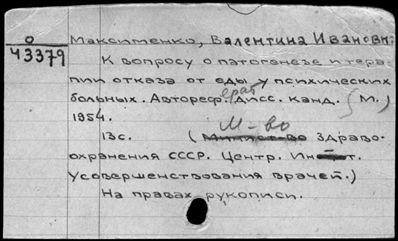 О
43379
Максименко, Валентина Ивановн.
К вопросу о патогенезе и тера-
пии отказа от еды у психических
больных. Автореферат дисс. Канд. (М.)
1954.
13с. (М-во Здраво-
охранения СССР. Центр. Ин-т.
Усовершенствования врачей.)
На правах рукописи.